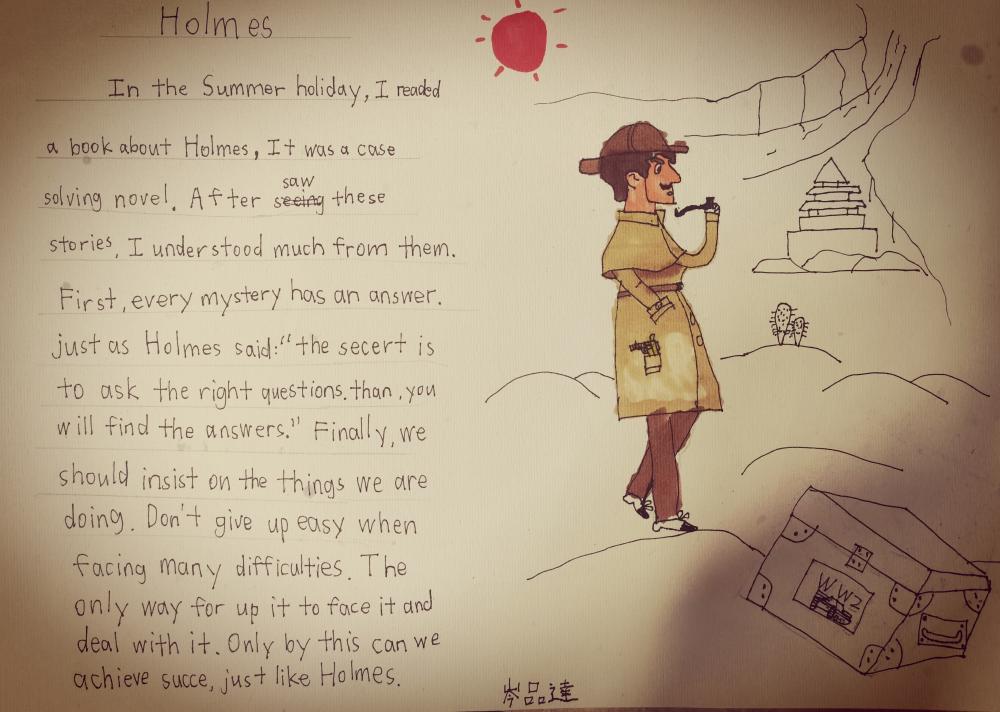 Holmes
In the Summer holiday, I readed
a book about Holmes, It was a case
solving novel. After seeing saw these
stories, I understood much from them.
First, every mystery has an answer.
just as Holmes said:“the secert is
to ask the right questions. than, you
will find the answers.” Finally, we
should insist on the things we are
doing. Don't give up easy when
facing many difficulties. The
only way for up it to face it and
deal with it. Only by this can we
achieve succe, just like Holmes.
WW2
岑品達